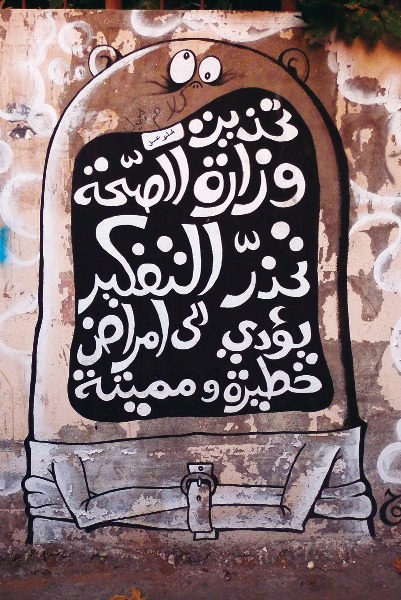 تحذير
وزارة الصحة
تحذر التفكير
يؤدي الى امراض
خطيرة و مميتة